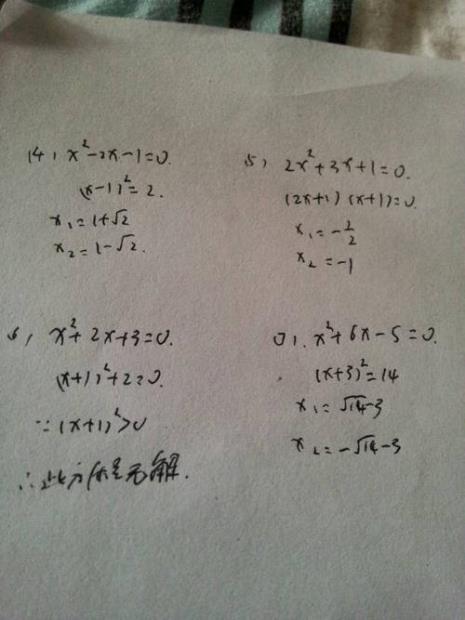 (4) x²-2x-1=0.
(x-1)²=2.
x₁=1+√2
x₂=1-√2.
(5) 2x²+3x+1=0.
(2x+1)(x+1)=0.
x₁=-1/2
x₂=-1
6) x²+2x+3=0.
(x+1)²+2=0.
∵(x+1)²>0
∴此方程无解.
(7). x²+6x-5=0.
(x+3)²=14
x₁=√14-3
x₂=-√14-3